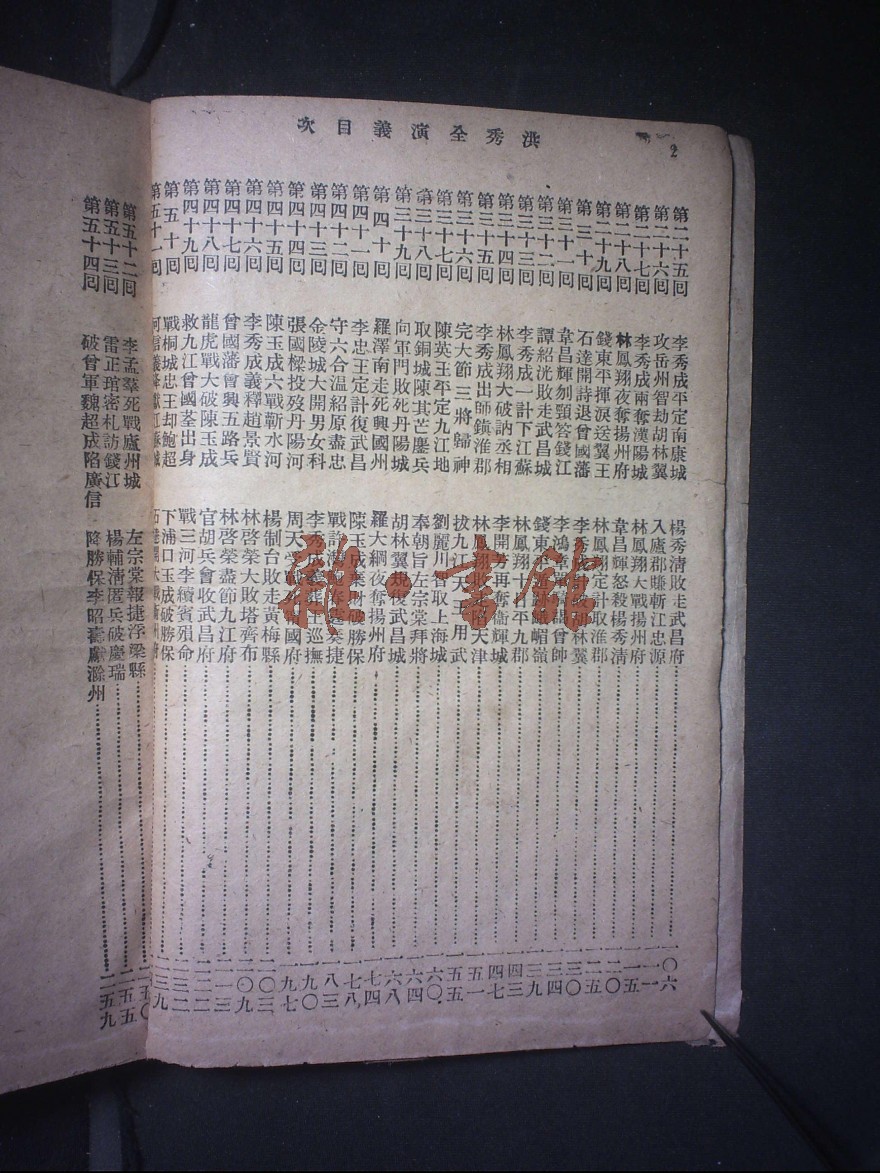 洪秀全演義目次
2
第二十五囘 李秀成平定南康城 楊秀清敗走武昌府 一〇六
第二十六囘 攻岳州智劫胡林翼 入廬郡賺斬江忠源 一一一
第二十七囘 李秀成兩奪漢陽城 林鳳翔大戰揚州府 一一五
第二十八囘 林鳳翔夜奪揚州府 韋昌輝怒殺楊秀清 一二〇
第二十九囘 錢東平揮淚送翼王 林鳳翔定計取淮郡 一二五
第三十囘 石達開詩退曾國藩 李秀成 破胡林翼 一三〇
第三十一囘 韋昌輝刎頸答錢江 李鴻章 謁曾帥 一三四
第三十二囘 譚紹洸敗走武昌城 錢東平 嵋嶺 一三九
第三十三囘 李秀成一計下江蘇 林鳳翔十日平九郡 一四三
第三十四囘 林鳳翔大破訥丞相 李開芳再奪衞輝城 一四七
第三十五囘 李秀成出師鎭淮郡 林鳳翔敗走陷天津 一五一
第三十六囘 完大節三將歸神 拔九江天王用武 一五五
第三十七囘 陳英王平定九江地 劉麗川智取上海城 一六〇
第三十八囘 取銅城陳其芒鏖兵 奉朝旨左宗棠拜將 一六四
第三十九囘 向軍門敗死丹陽城 胡林翼規復武昌城 一六八
第四十囘 羅澤南走死興國州 羅大綱夜奪揚州府 一七四
第四十一囘 李忠王定計復武昌 陳玉成棄財破勝保 一七八
第四十二囘 守六合溫紹原盡忠 戰許灣 春霆奏捷 一八三
第四十三囘 金陵城大開男女科 李秀成義葬王巡撫 一九〇
第四十四囘 張國樑投歿丹陽河 周天受戰 國府 一九七
第四十五囘 陳玉成六戰蘄水河 楊制台敗走黃梅縣 二〇三
第四十六囘 李秀成義釋趙景賢 林啓榮大敗塔齊布 二〇九
第四十七囘 曾國藩會興五路兵 林啓榮盡節九江府
第四十八囘 龍虎戰大破陳玉成 官胡兵會收武昌府
第四十九囘 救九江曾國荃出身 戰三河李續賓殞命
第五十囘 戰桐城忠王却鮑超 下浦口玉成破勝保
第五十一囘
第五十二囘 李孟羣死戰廬州城 左宗棠報捷浮梁縣 二五〇
第五十三囘 雷正琯密札訪錢江 楊輔清匿兵破慶瑞 二五五
第五十四囘 破曾軍魏超成陷廣信 降勝保李昭壽獻滁州 二五九
雜·書館